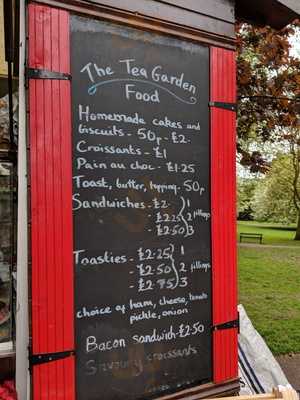 The Tea Garden
Food
Homemade cakes and
biscuits - 50p - £2
Croissants - £1
Pain au choc - £1.25
Toast, butter, topping - 50p
Sandwiches - £2 - 1
- £2.25 2 fillings
- £2.50 3
Toasties - £2.25 1
- £2.50 2 fillings
- £2.75 3
choice of ham, cheese, tomato
pickle, onion
Bacon sandwich - £2.50
Savoury croissants